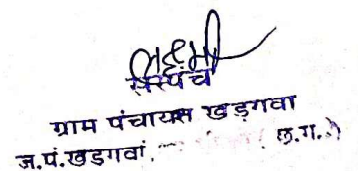 लक्ष्मी
सरपंच
ग्राम पंचायत खड़गवा
ज.पं.खडगवां, (छ.ग.)